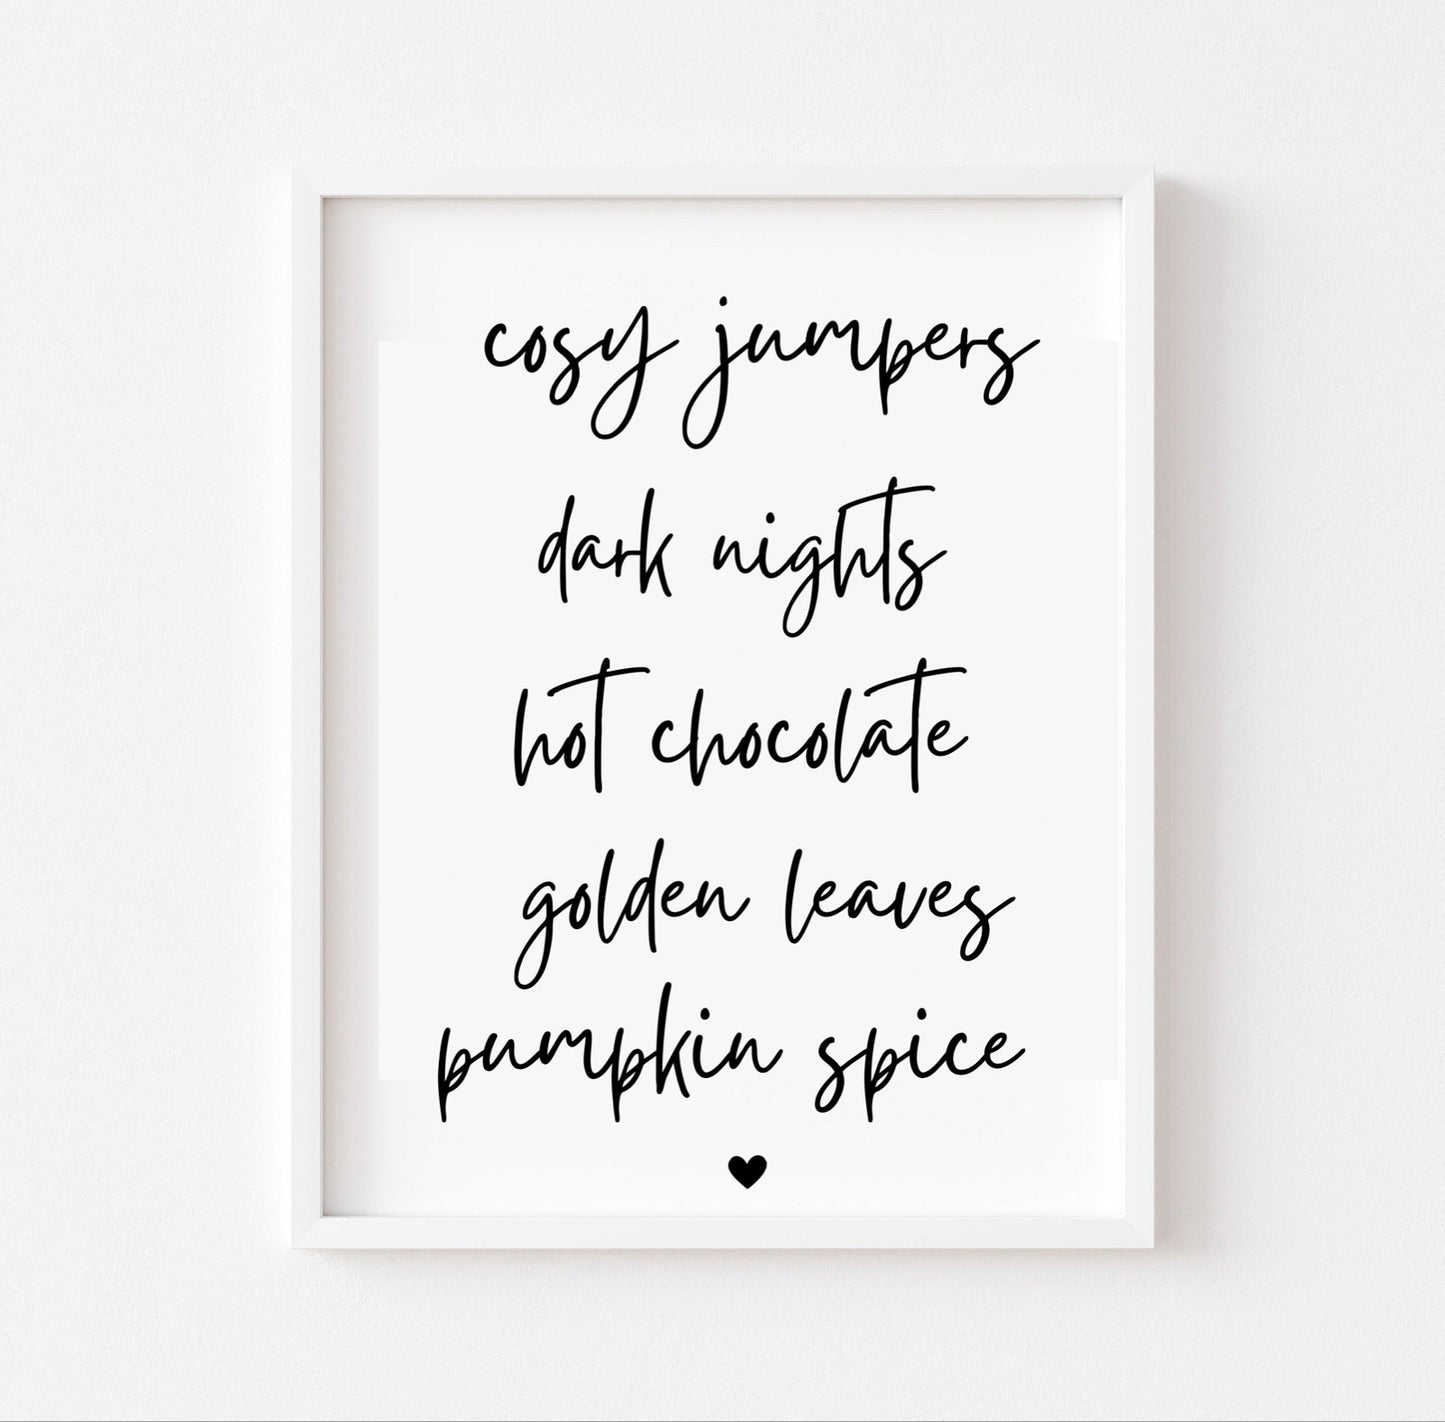 cosy jumpers
dark nights
hot chocolate
golden leaves
pumpkin spice